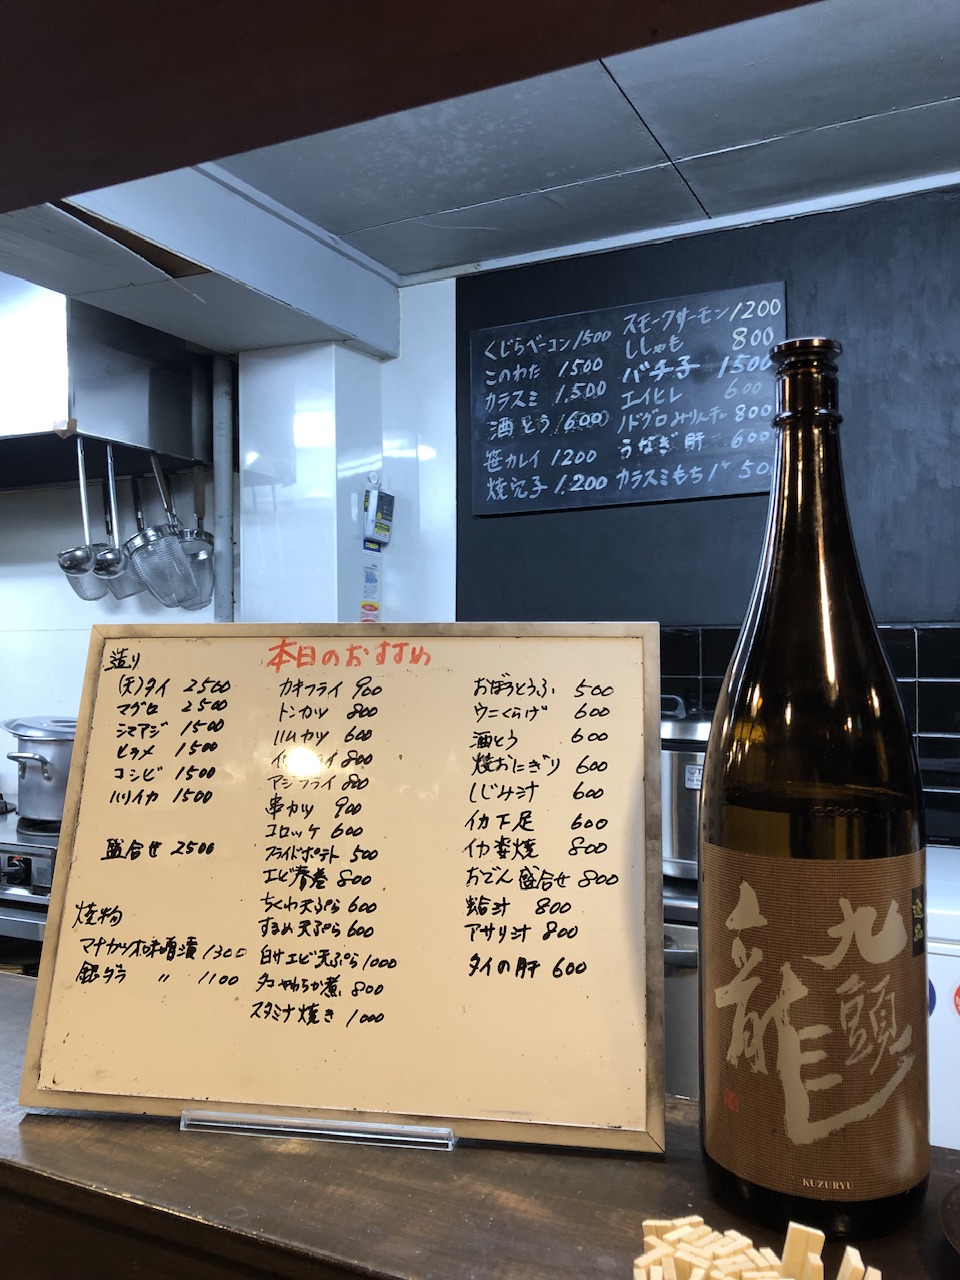 くじらベーコン 1500
このわた 1500
カラスミ 1,500
酒とう 600
笹カレイ 1200
焼穴子 1,200
スモークサーモン 1200
ししゃも 800
バチ子 1500
エイヒレ 600
ノドグロみりん干 800
うなぎ肝 600
カラスミもち 1ケ 500
本日のおすすめ
造り
(天)タイ 2500
マグロ 2500
シマアジ 1500
ヒラメ 1500
コシビ 1500
ハリイカ 1500
盛合せ 2500
焼物
マナガツオ味噌漬 1300
銀ダラ 〃 1100
カキフライ 900
トンカツ 800
ハムカツ 600
フライ 800
アジフライ 800
串カツ 900
コロッケ 600
フライドポテト 500
エビ春巻 800
ちくわ天ぷら 600
するめ天ぷら 600
白サエビ天ぷら 1000
タコやわらか煮 800
スタミナ焼き 1000
おぼろとうふ 500
ウニくらげ 600
酒とう 600
焼おにぎり 600
しじみ汁 600
イカ下足 600
イカ姿焼 800
おでん盛合せ 800
蛤汁 800
アサリ汁 800
タイの肝 600
九頭龍
KUZURYU